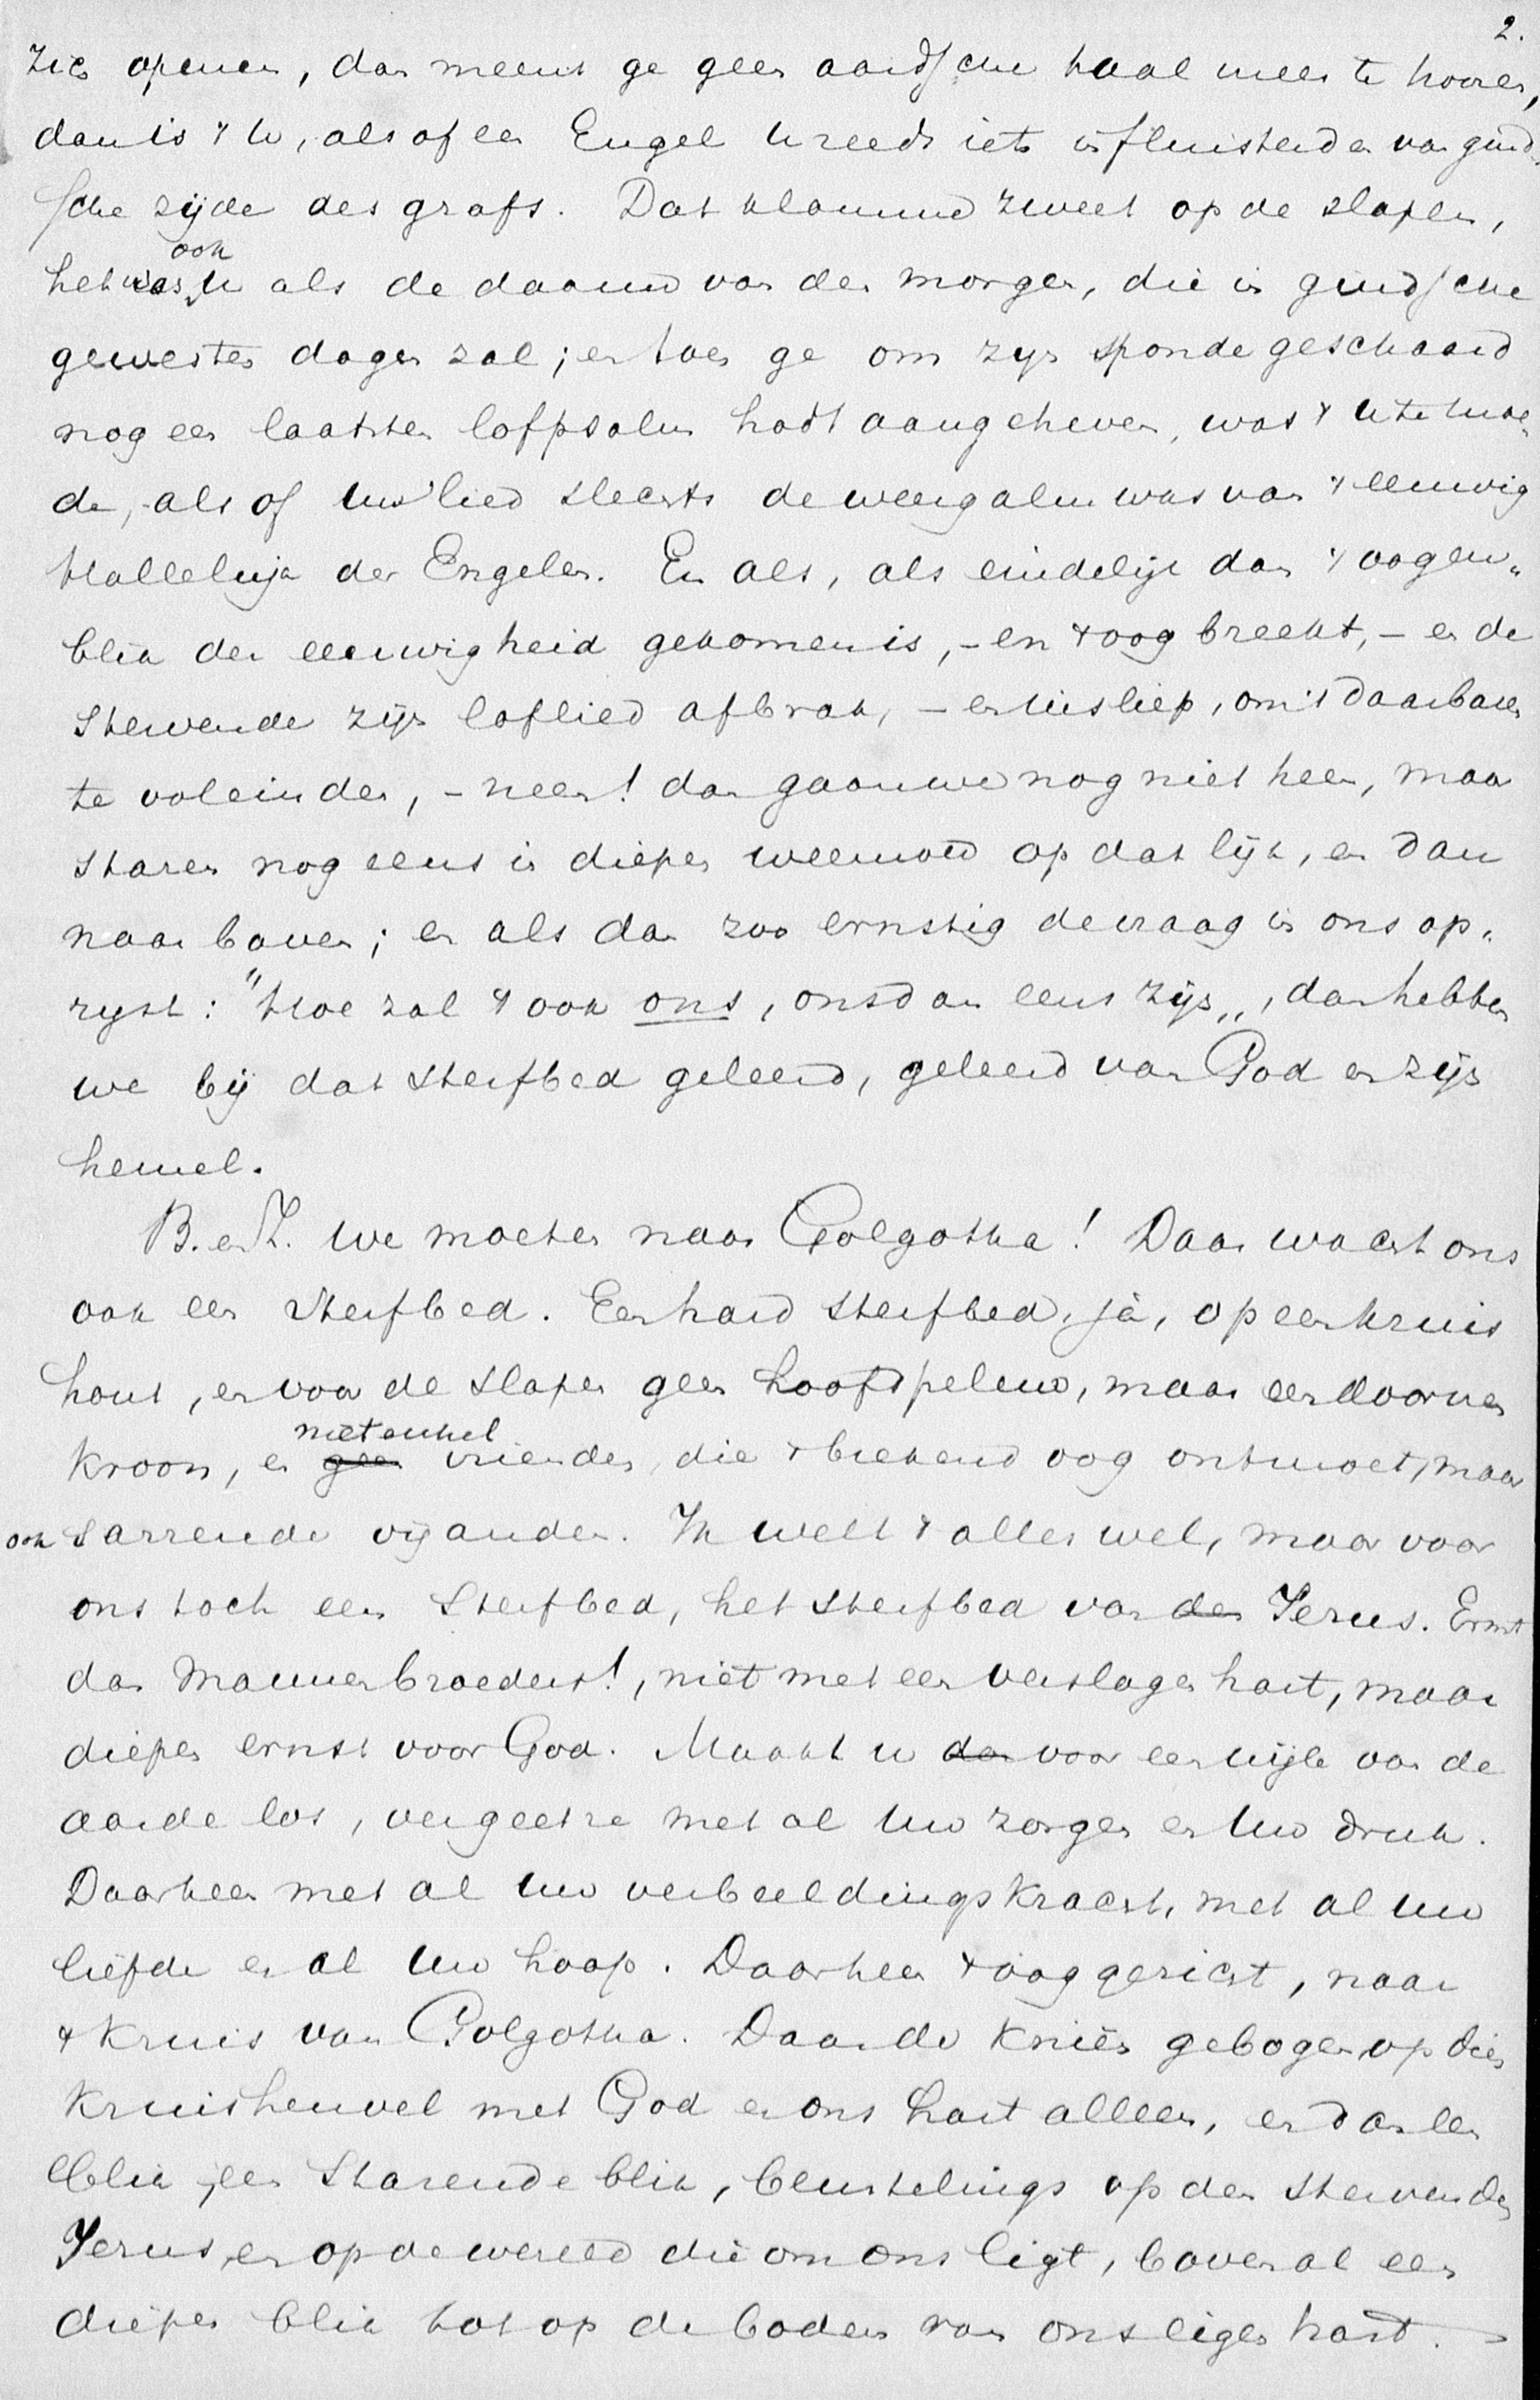 2.
zich openen, dan meent ge geen aardsche taal meer te hooren,
dan is 't U, als of een Engel U reeds iets influisterde van gind-
sche zijde des grafs. Dat klamme zweet op de slapen,
het was ook U als de daauw van den morgen, die in gindsche
gewesten dagen zal; en toen ge om zijn sponde geschaard
nog een laatsten lofpsalm hadt aangeheven, was 't U te moe-
de, als of Uw lied slechts de weergalm was van 't eeuwig
Halleluja der Engelen. En als, als eindelijk dan 't oogen-
blik der eeuwigheid gekomen is, – en 't oog breekt, – en de
stervende zijn loflied afbrak, – en insliep, om 't daarboven
te voleinden, – neen! dan gaan we nog niet heen, maar
staren nog eens in diepen weemoed op dat lijk, en dan
naar boven; en als dan zoo ernstig de vraag in ons op-
rijst: "Hoe zal 't ook ons, ons dan eens zijn", dan hebben
we bij dat sterfbed geleerd, geleerd van God en zijn
hemel.
B. en Z. we moeten naar Golgotha! Daar wacht ons
ook een sterfbed. Een hard sterfbed, ja, op een kruis
hout, en voor de slapen geen hoofdpeluw, maar een doornen
kroon, en geen niet enkel vrienden, die 't brekend oog ontmoet, maar
ook sarrende vijanden. Ik weet 't alles wel, maar voor
ons toch een sterfbed, het sterfbed van den Jezus. Ernst
dan Mannenbroeders!, niet met een verslagen hart, maar
diepen ernst voor God. Maakt u dan voor een wijle van de
aarde los, vergeet ze met al Uw zorgen en Uw druk.
Daarheen met al Uw verbeeldingskracht, met al Uw
liefde en al Uw hoop. Daarheen 't oog gericht, naar
't kruis van Golgotha. Daar de knieën gebogen op dien
kruisheuvel met God en ons hart alleen, en dan een
blik, een starende blik, beurtelings op den stervenden
Jezus, en op de wereld die om ons ligt, bovenal een
diepen blik tot op de bodem van ons eigen hart. –